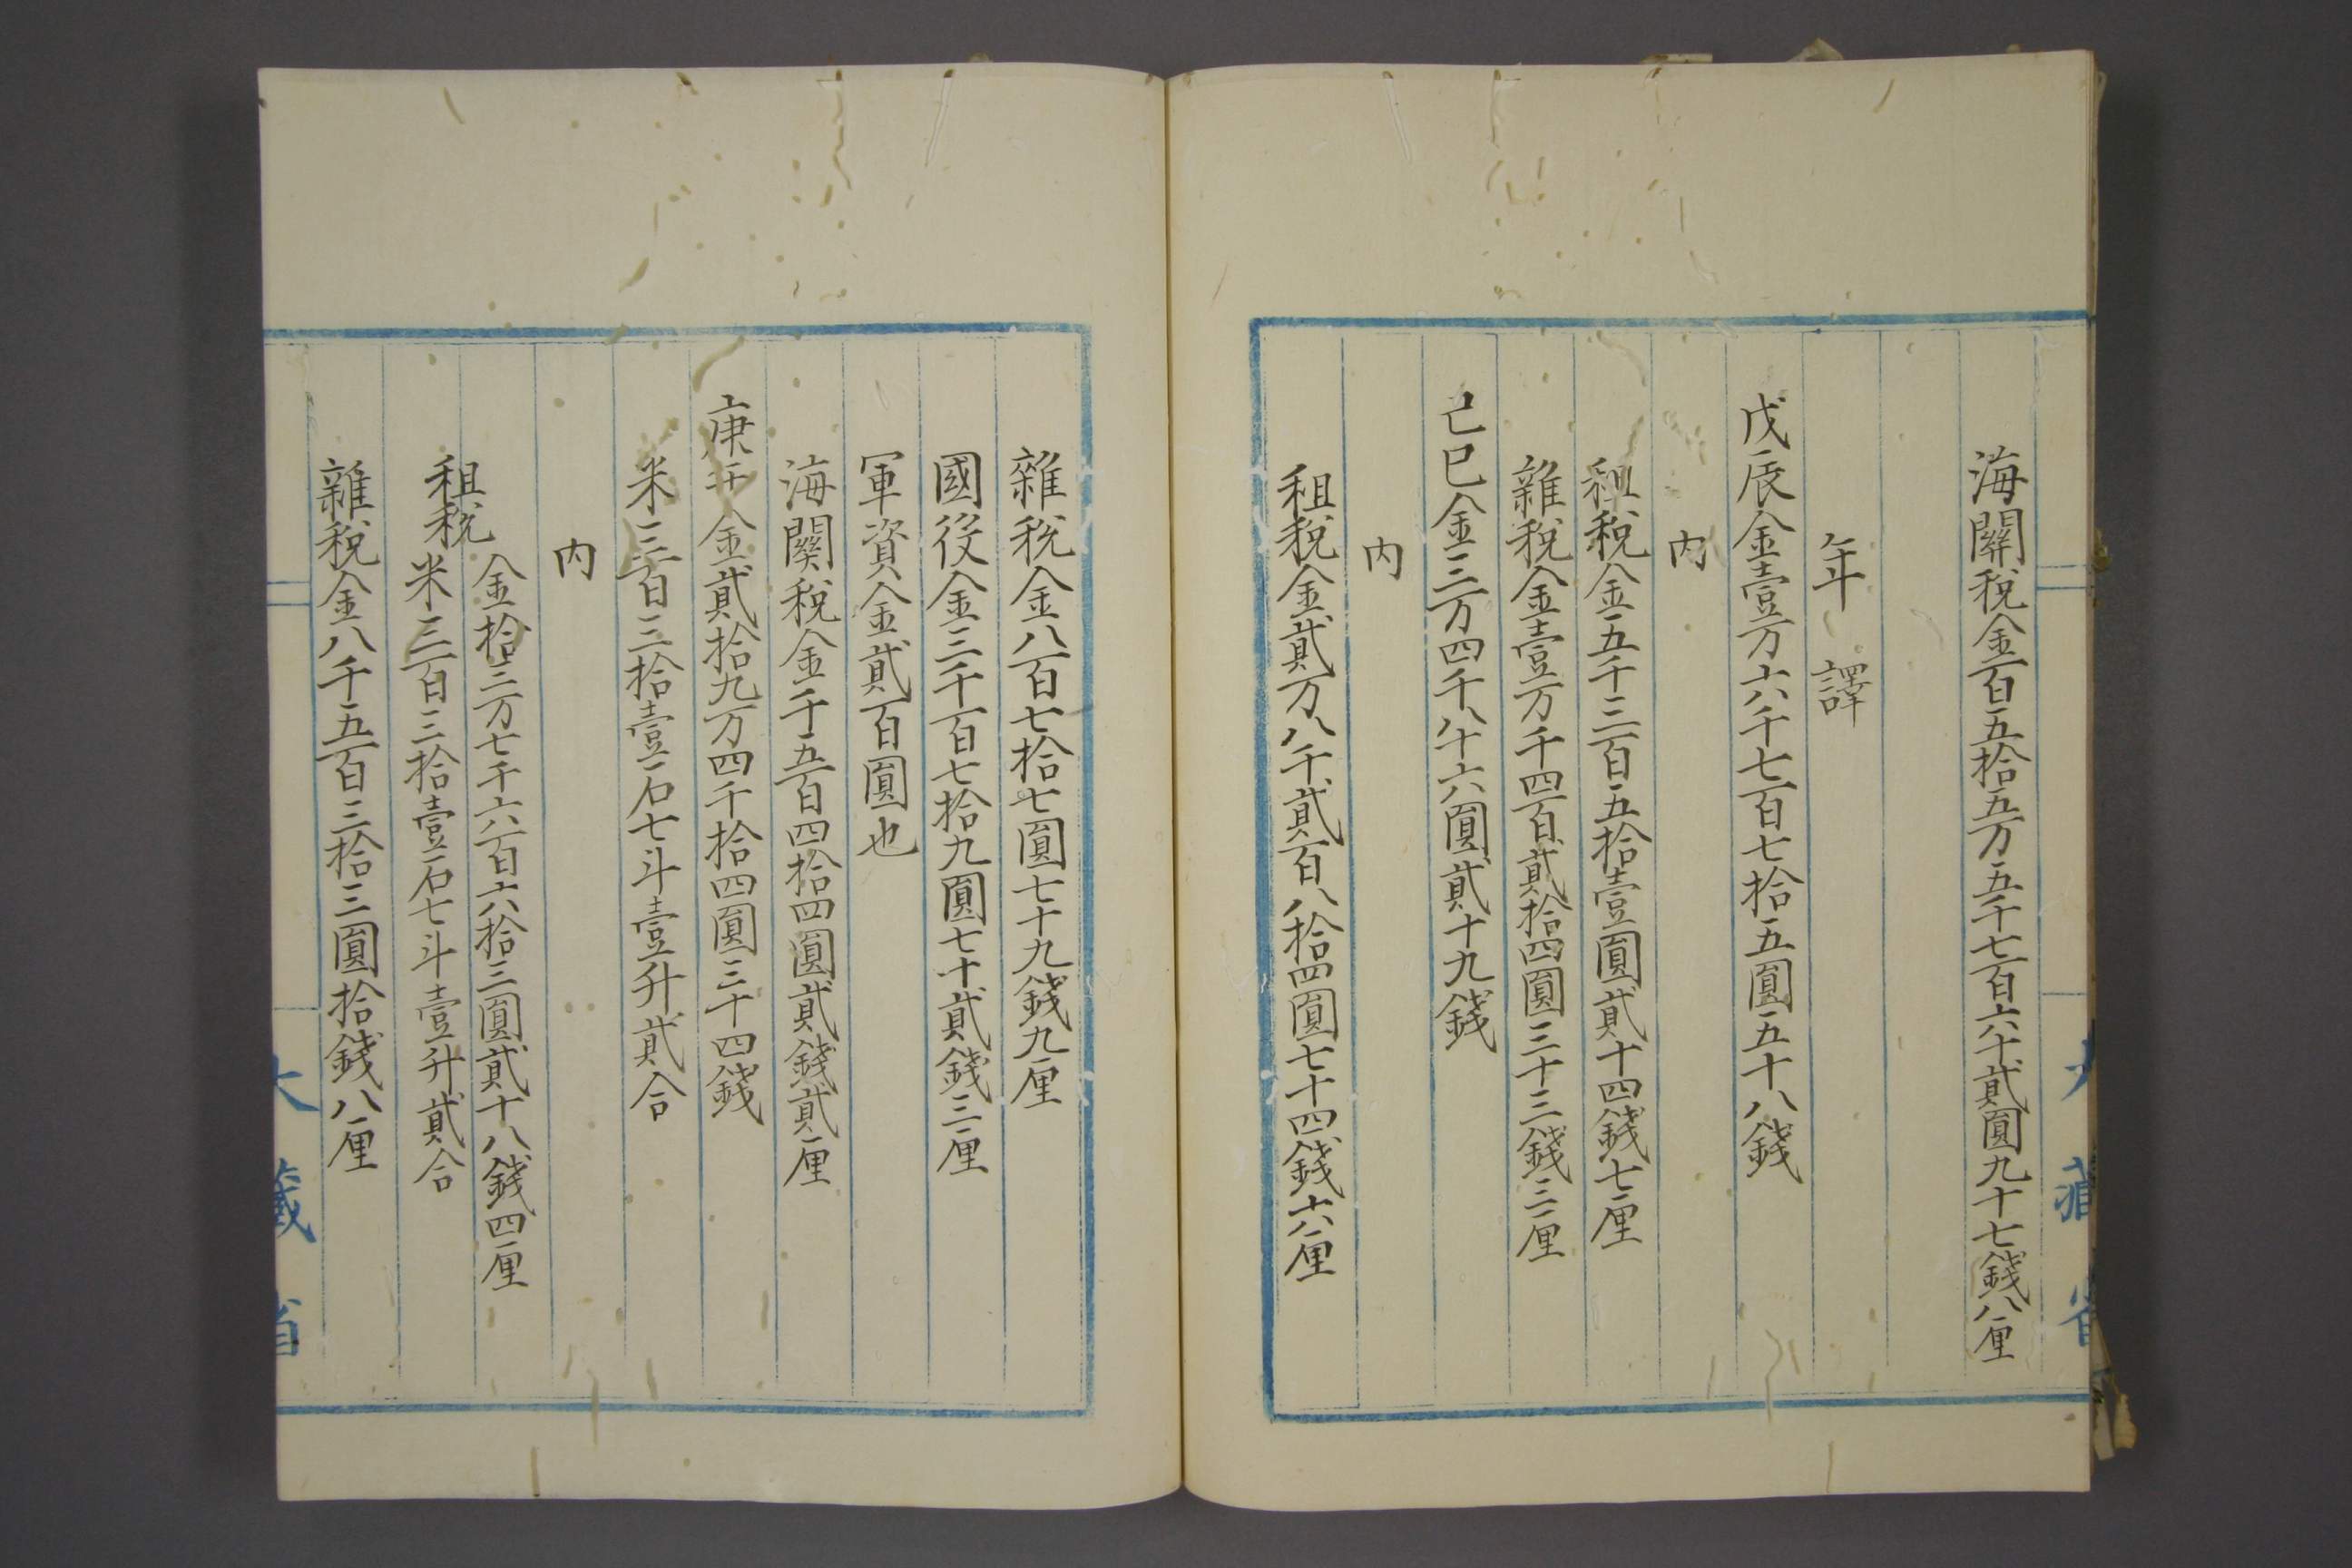 海關税金百五拾五万五千七百六十貳圓九十七錢八厘
年譯
戊辰金壹万六千七百七拾五圓五十八錢
内
租税金五千三百五拾壹圓貳十四錢七厘
雜税金壹万千四百貳拾四圓三十三錢三厘
己巳金三万四千八十六圓貳十九錢
内
租税金貳万八千貳百八拾四圓七十四錢六厘
雜税金八百七拾七圓七十九錢九厘
國役金三千百七拾九圓七十貳錢三厘
軍資金貳百圓也
海關税金千五百四拾四圓貳錢貳厘
庚午金貳拾九万四千拾四圓三十四錢
米三百三拾壹石七斗壹升貳合
内
租税
金拾三万七千六百六拾三圓貳十八錢四厘
米三百三拾壹石七斗壹升貳合
雜税金八千五百三拾三圓拾錢八厘
大藏省